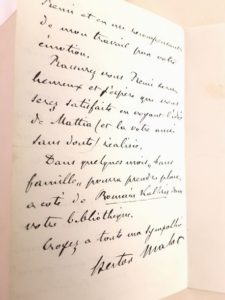 Remi et en me recompensant
de mon travail par votre
émotion.
Rassurez vous Remi sera
heureux et j'espère que vous
serez satisfaite en voyant l'idée
de Mattia (et la votre aussi
sans doute) réalisée.
Dans quelques mois, "Sans
famille" pourra prendre place
a coté de Romain Kalbris dans
votre bibliothèque.
Croyez a toute ma sympathie
Hector Malot